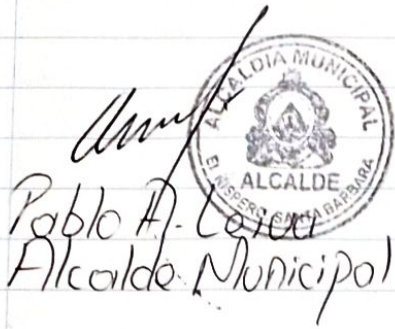 ALCALDIA MUNICIPAL
ALCALDE
SANTA BARBARA
Pablo A.
Alcalde Municipal